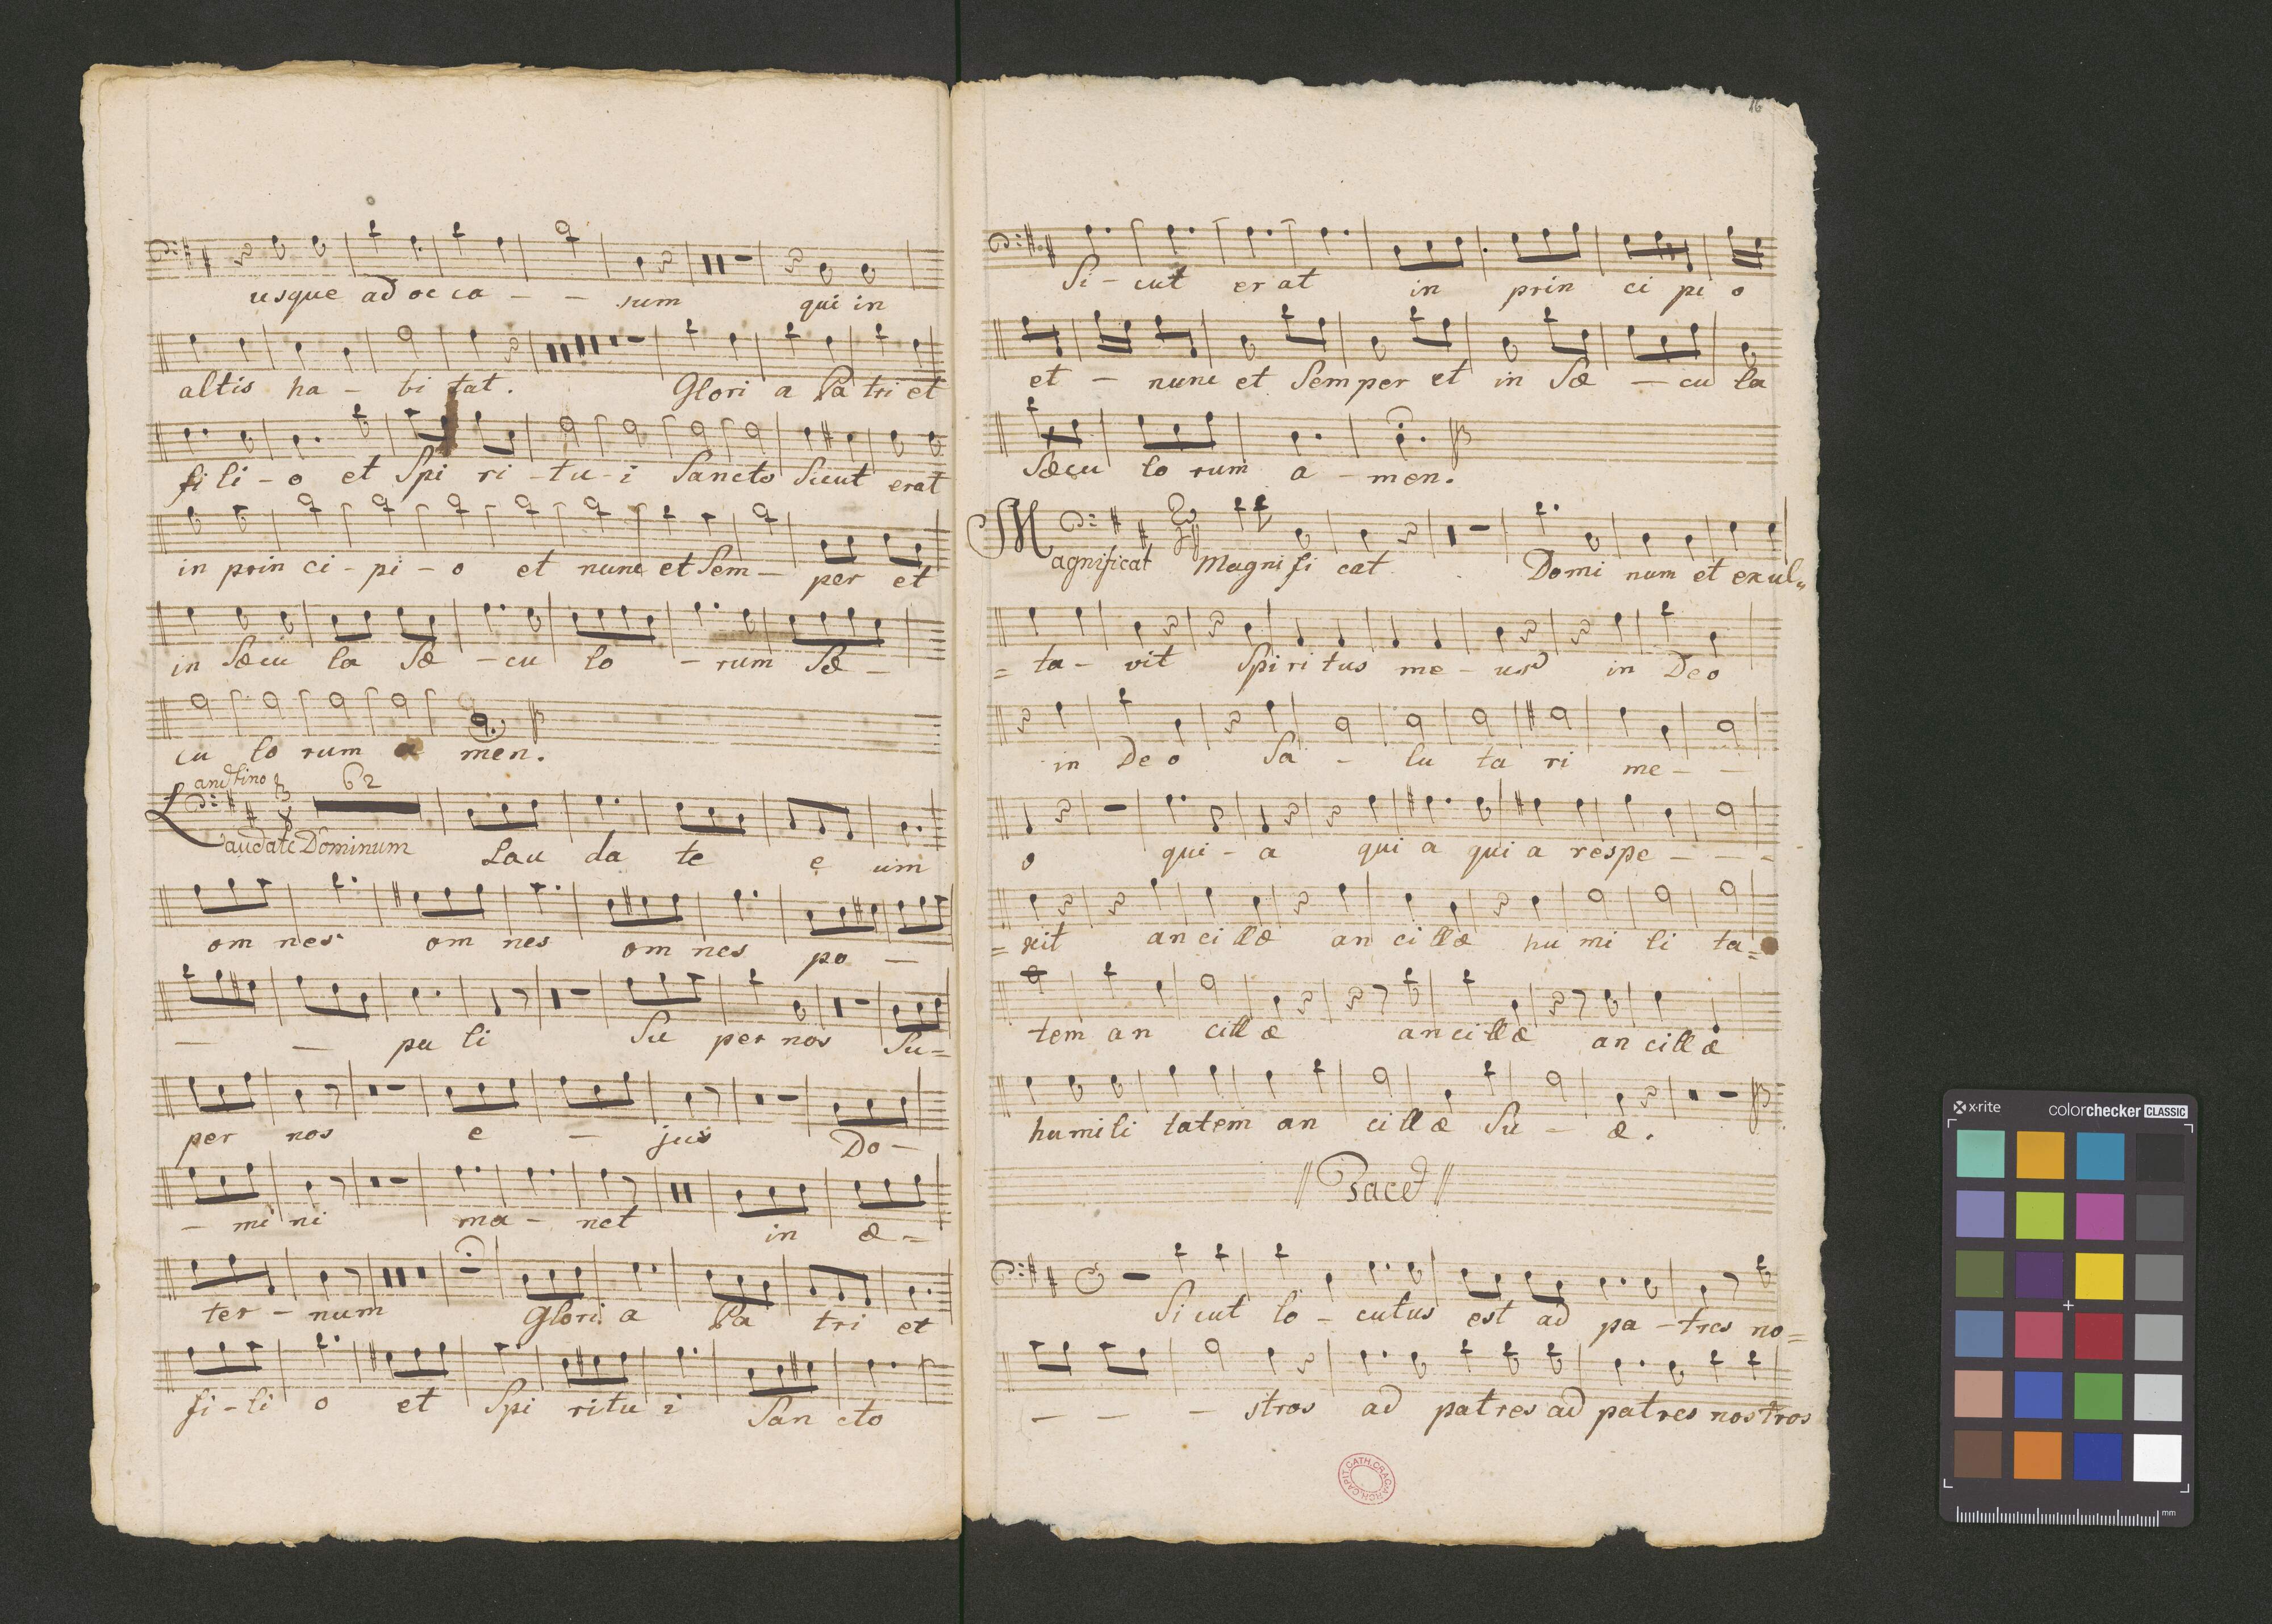 usque ad occa - - sum qui in
altis ha - bi tat. Glori a Pa tri et
fi li - o et Spi ri - tu - i Sancto Sicut erat
in prin ci - pi - o et nunc et Sem - per et
in Sæcu la Sæ - cu lo - rum Sæ -
cu lo rum a men.
andtino 62
Laudate Dominum Lau da te e um
om nes om nes om nes po -
- - pu li Su per nos Su=
per nos e - jus Do -
- mi ni ma - net in æ -
ter - num Glori a Pa tri et
fi - li o et Spi ritu i San cto
16
Si - cut er at in prin ci pi o
et - nunc et Semper et in Sæ - cu la
Sæcu lo rum a - men.
Magnificat Magni fi cat Domi num et exul„
= ta - vit Spiri tus me - us in Deo
in De o Sa - lu ta ri me - -
o qui - a qui a qui a respe - - -
= xit an ci llæ an ci llæ hu mi li ta=
tem an cill æ an ci llæ an cill æ
humili tatem an ci ll æ Su - æ.
// Tacet //
Si cut lo - cutus est ad pa - tres no=
- - - stros ad patres ad patres nostros
ARCH. CAPIT. CATH. CRAC.
x-rite colorchecker CLASSIC
mm